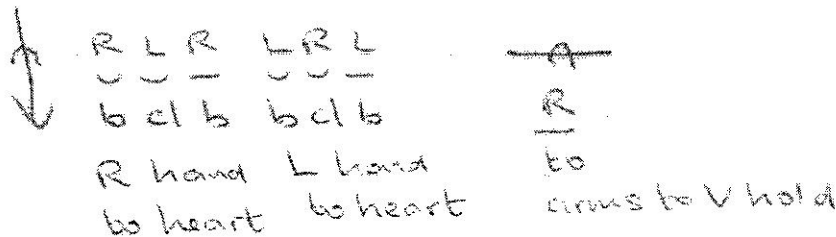 R L R L R L
b cl b b cl b R
R hand L hand to
to heart to heart arms to V hold